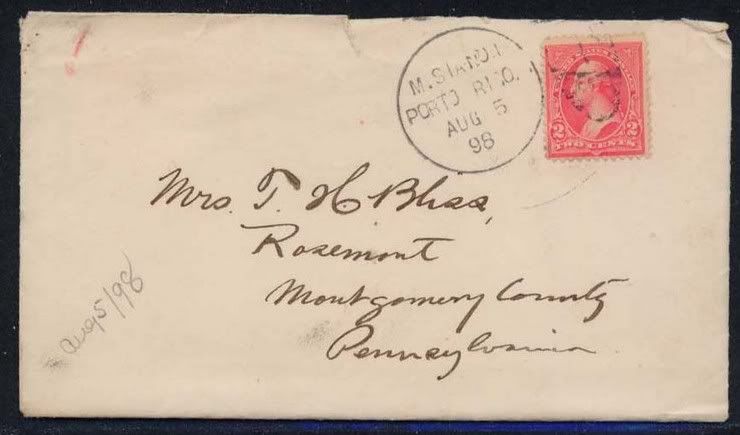 M. STA. NO. 1
PORTO RICO.
AUG 5
98
2 2
TWO CENTS
Mrs. T. H Bliss,
Rosemont
Montgomery County
Pennsylvania
Aug 5/98